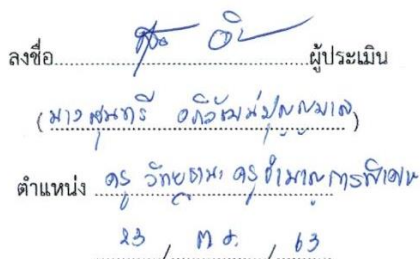 ลงชื่อ..............................ผู้ประเมิน
(นางสุนทรี อภิวัฒน์ปุญญมาล)
ตำแหน่ง ครู วิทยฐานะ ครูชำนาญการพิเศษ
23 / ต.ค. / 63